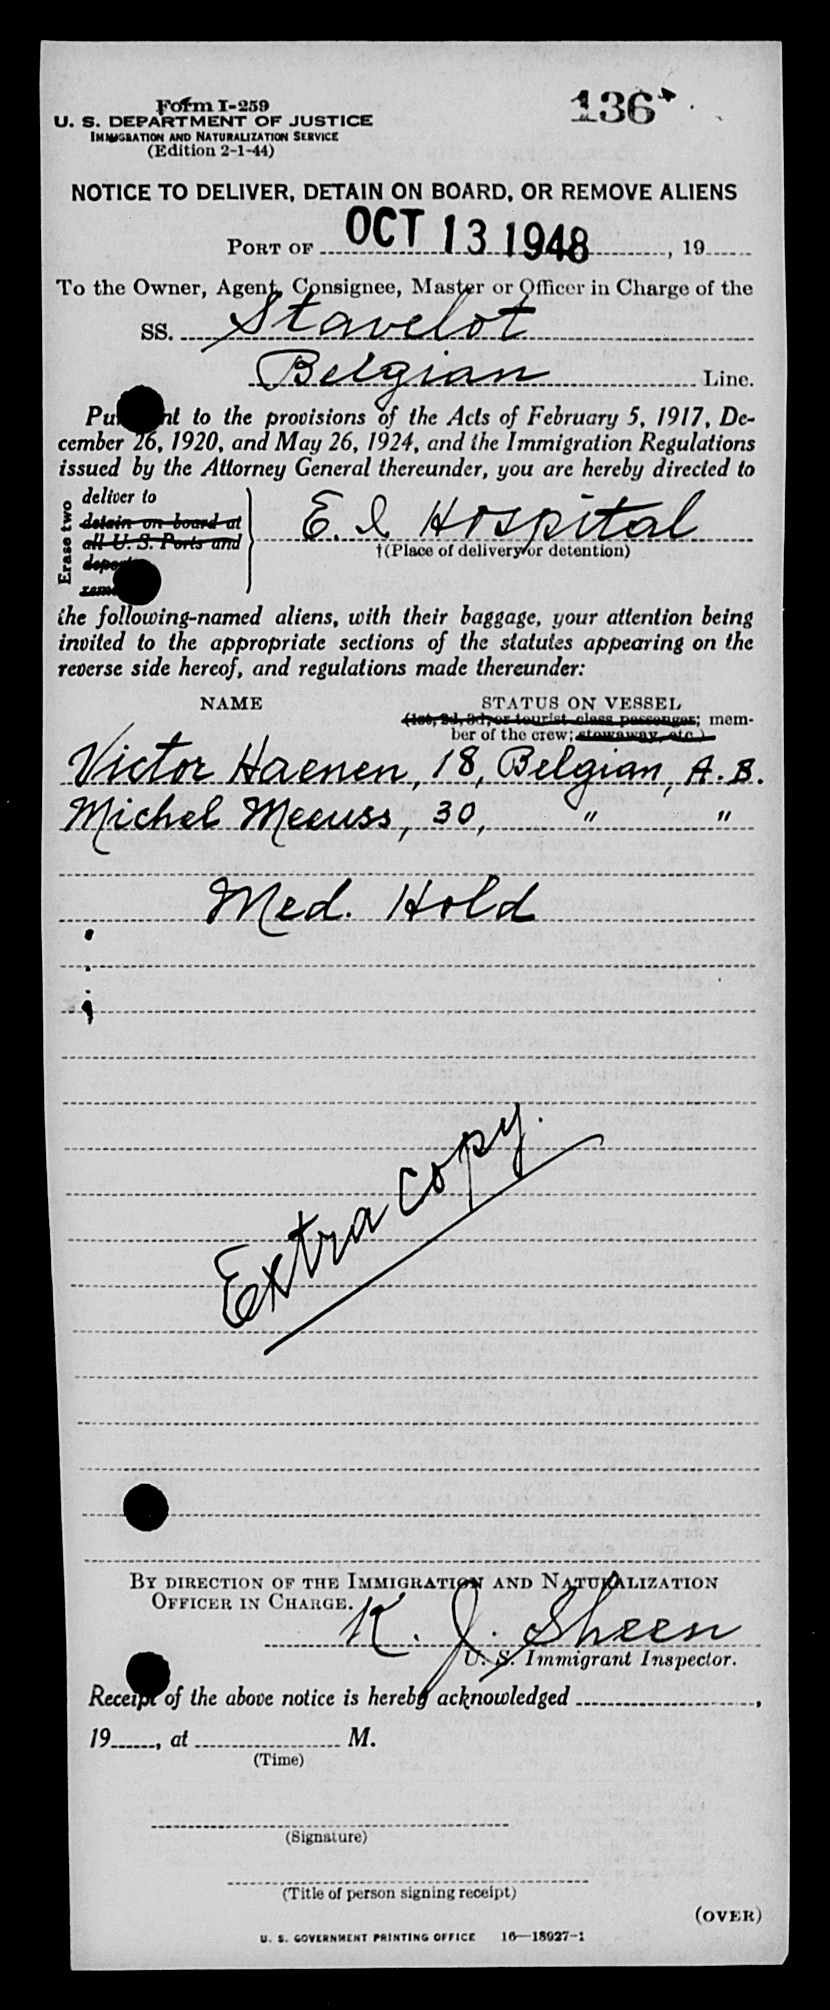 136
Form I-259
U. S. DEPARTMENT OF JUSTICE
IMMIGRATION AND NATURALIZATION SERVICE
(Edition 2-1-44)
NOTICE TO DELIVER, DETAIN ON BOARD, OR REMOVE ALIENS
PORT OF OCT 13 1948, 19
To the Owner, Agent, Consignee, Master or Officer in Charge of the
SS. Stavelot
Belgian Line.
Pursuant to the provisions of the Acts of February 5, 1917, De-
cember 26, 1920, and May 26, 1924, and the Immigration Regulations
issued by the Attorney General thereunder, you are hereby directed to
Erase two
deliver to
detain on board at
all U. S. Ports and
E. I. Hospital
†(Place of delivery or detention)
the following-named aliens, with their baggage, your attention being
invited to the appropriate sections of the statutes appearing on the
reverse side hereof, and regulations made thereunder:
NAME STATUS ON VESSEL
(1st, 2d, 3d, or tourist class passenger; mem-
ber of the crew; stowaway, etc.)
Victor Haenen, 18, Belgian, A.B.
Michel Meeuss, 30, " "
Med. Hold
Extra copy.
BY DIRECTION OF THE IMMIGRATION AND NATURALIZATION
OFFICER IN CHARGE.
K. J. Sheen
U. S. Immigrant Inspector.
Receipt of the above notice is hereby acknowledged ,
19 , at M.
(Time)
(Signature)
(Title of person signing receipt)
(OVER)
U. S. GOVERNMENT PRINTING OFFICE 16—18927-1